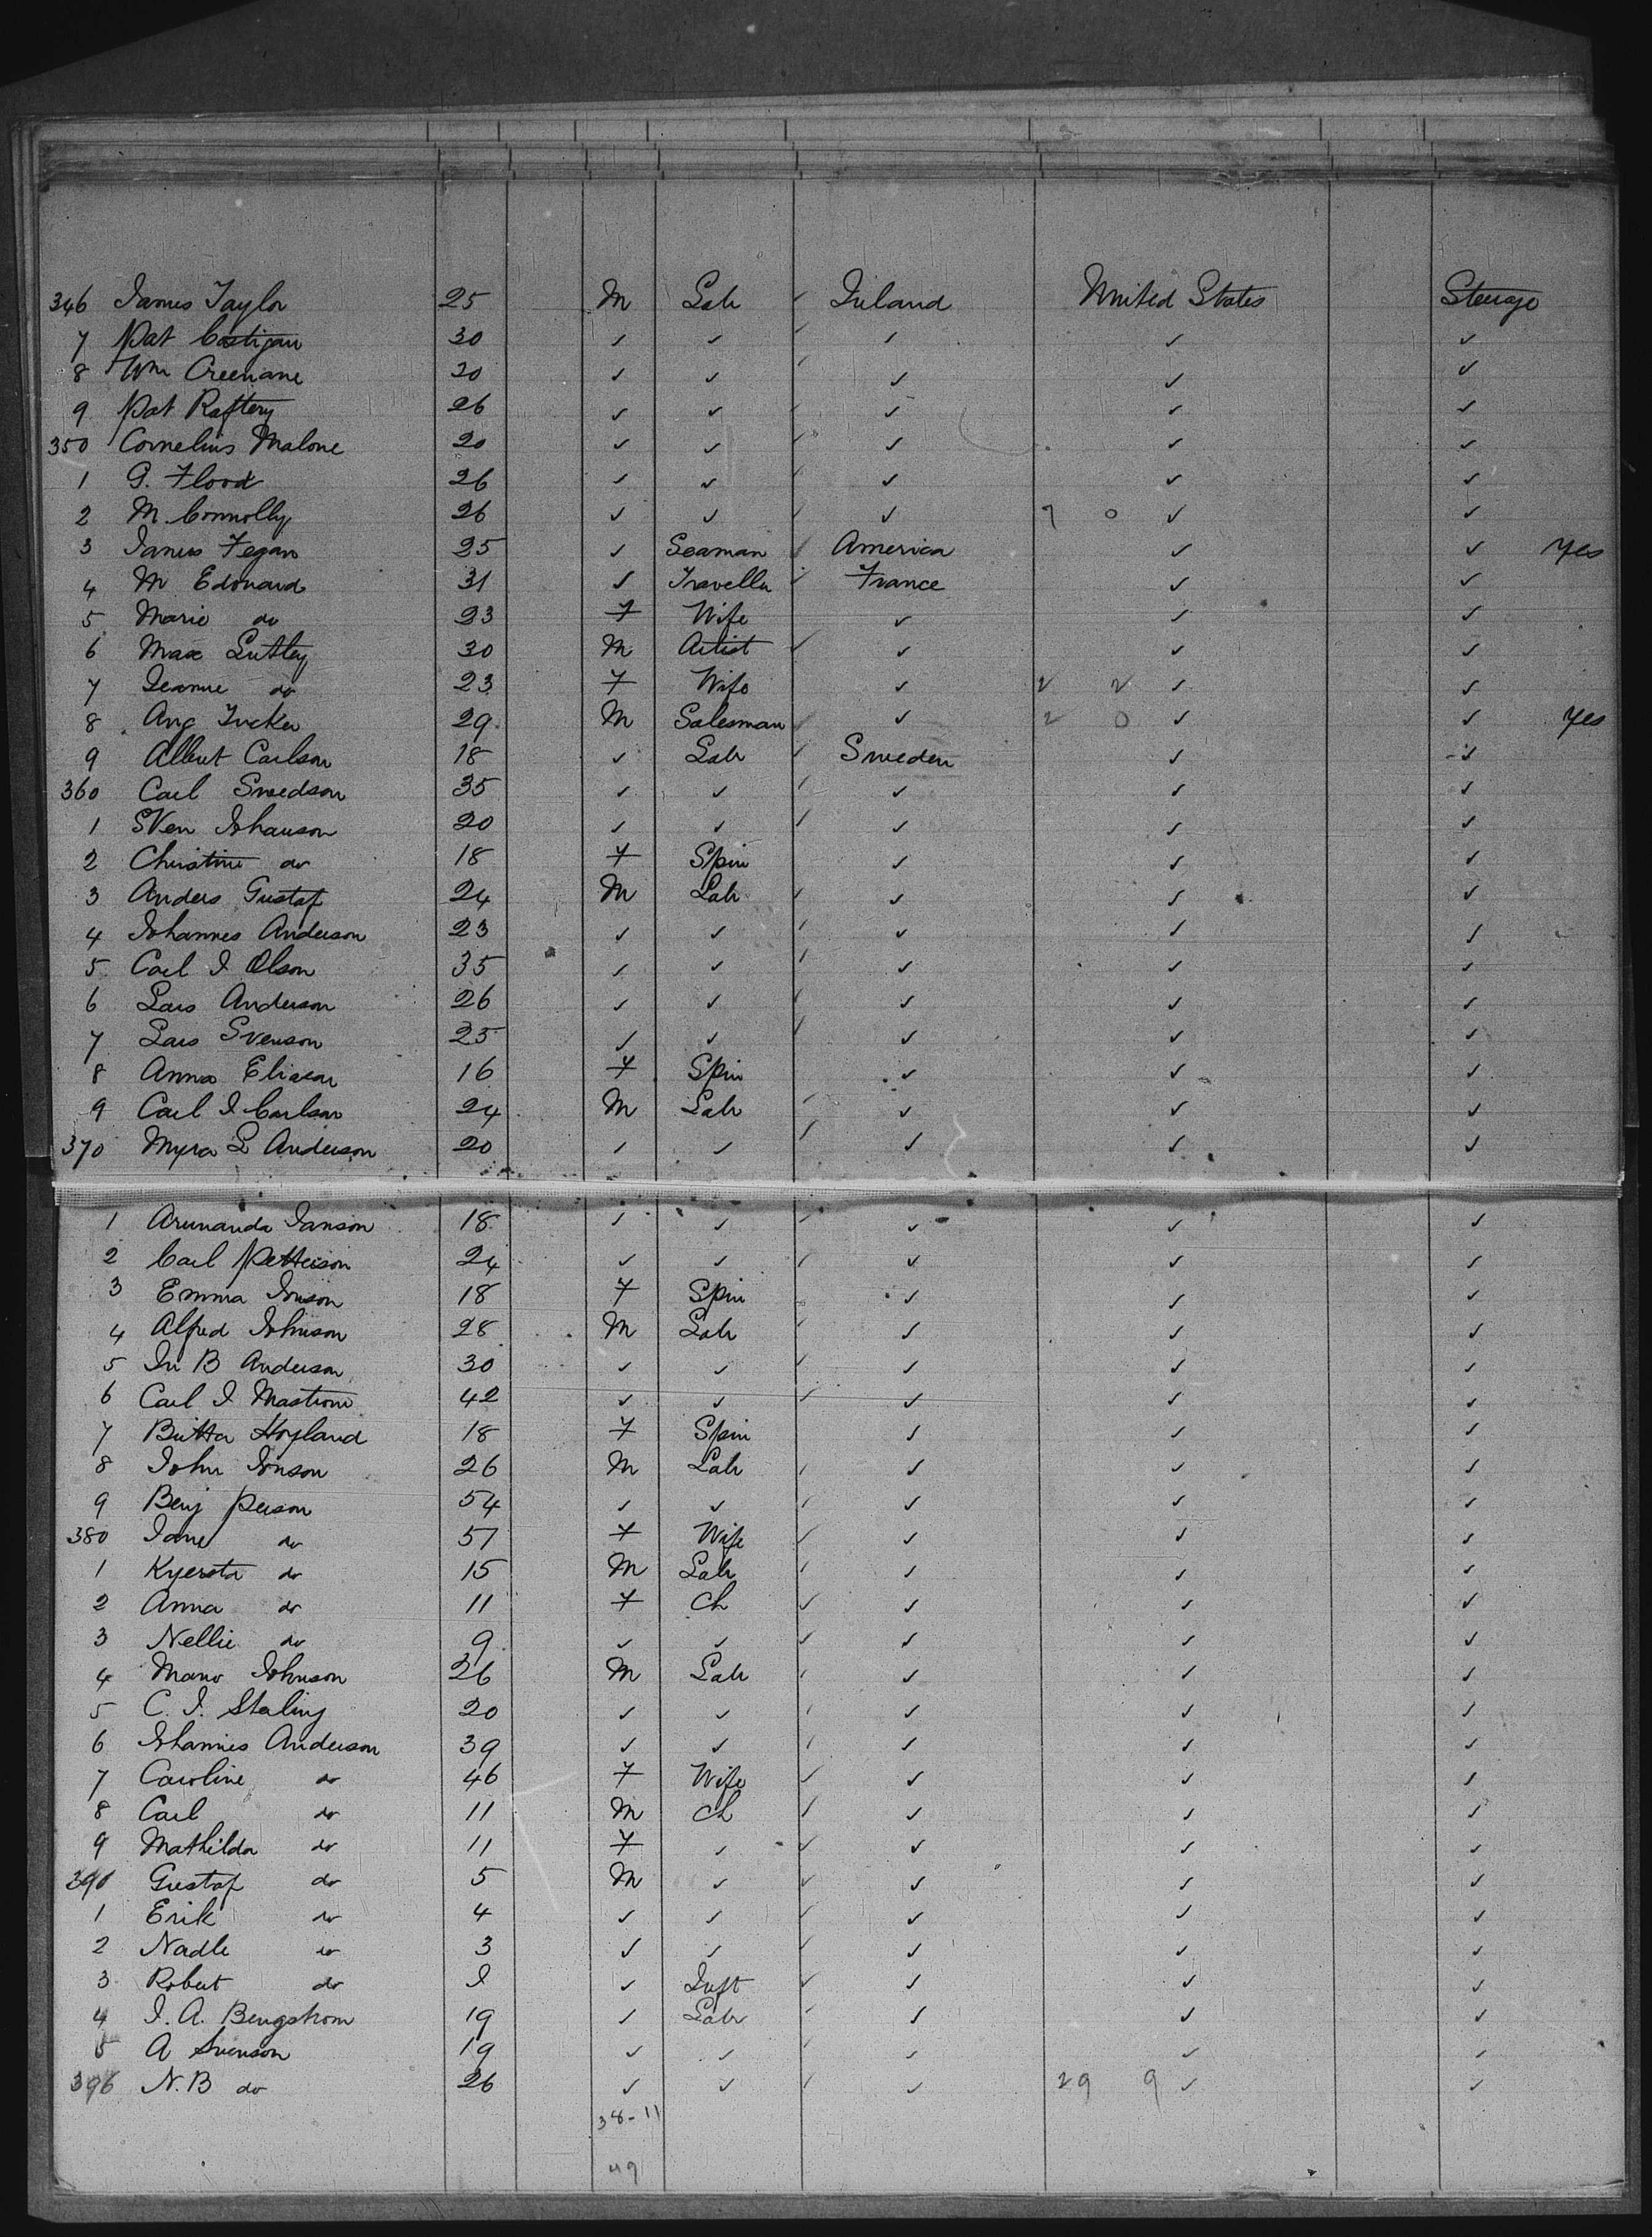 346 James Taylor 25 M Lab ✓ Ireland United States Steerage
7 Pat Costigan 30 ✓ ✓ ✓ ✓ ✓ ✓
8 Wm Creenane 20 ✓ ✓ ✓ ✓ ✓ ✓
9 Pat Raftery 26 ✓ ✓ ✓ ✓ ✓ ✓
350 Cornelius Malone 20 ✓ ✓ ✓ ✓ ✓ ✓
1 P. Flood 26 ✓ ✓ ✓ ✓ ✓ ✓
2 M. Connolly 26 ✓ ✓ ✓ ✓ 7 0 ✓ ✓
3 James Fegan 25 ✓ Seaman ✓ America ✓ ✓ Yes
4 M Edouard 31 ✓ Traveller ✓ France ✓ ✓
5 Marie do 23 F Wife ✓ ✓ ✓
6 Max Lutley 30 M Artist ✓ ✓ ✓ ✓
7 Jeanne do 23 F Wife ✓ 2 2 ✓ ✓
8 Aug Tucker 29 M Salesman ✓ ✓ 2 0 ✓ ✓ Yes
9 Albert Carlson 18 ✓ Lab ✓ Sweden ✓ ✓
360 Carl Swedson 35 ✓ ✓ ✓ ✓ ✓ ✓
1 Sven Johanson 20 ✓ ✓ ✓ ✓ ✓ ✓
2 Christine do 18 F Spin ✓ ✓ ✓
3 Anders Gustaf 24 M Lab ✓ ✓ ✓ ✓
4 Johannes Anderson 23 ✓ ✓ ✓ ✓ ✓ ✓
5 Carl J Olson 35 ✓ ✓ ✓ ✓ ✓ ✓
6 Lars Anderson 26 ✓ ✓ ✓ ✓ ✓ ✓
7 Lars Svenson 25 ✓ ✓ ✓ ✓ ✓ ✓
8 Anna Eliason 16 F Spin ✓ ✓ ✓
9 Carl J Carlson 24 M Lab ✓ ✓ ✓ ✓
370 Myra L Anderson 20 ✓ ✓ ✓ ✓ ✓ ✓
1 Armanda Janson 18 ✓ ✓ ✓ ✓ ✓ ✓
2 Carl Petterson 24 ✓ ✓ ✓ ✓ ✓ ✓
3 Emma Jonson 18 F Spin ✓ ✓ ✓
4 Alfred Johnson 28 M Lab ✓ ✓ ✓ ✓
5 Jn B Anderson 30 ✓ ✓ ✓ ✓ ✓ ✓
6 Carl J Mastrom 42 ✓ ✓ ✓ ✓ ✓ ✓
7 Britta Hoyland 18 F Spin ✓ ✓ ✓
8 John Jonson 26 M Lab ✓ ✓ ✓ ✓
9 Benj Person 54 ✓ ✓ ✓ ✓ ✓ ✓
380 Jane do 57 F Wife ✓ ✓ ✓ ✓
1 Kyersta do 15 M Lab ✓ ✓ ✓ ✓
2 Anna do 11 F Ch ✓ ✓ ✓ ✓
3 Nellie do 9 ✓ ✓ ✓ ✓ ✓ ✓
4 Mano Johnson 26 M Lab ✓ ✓ ✓ ✓
5 C. J. Staling 20 ✓ ✓ ✓ ✓ ✓ ✓
6 Johannis Anderson 39 ✓ ✓ ✓ ✓ ✓ ✓
7 Caroline do 46 F Wife ✓ ✓ ✓ ✓
8 Carl do 11 M Ch ✓ ✓ ✓ ✓
9 Mathilda do 11 F ✓ ✓ ✓ ✓ ✓
390 Gustaf do 5 M ✓ ✓ ✓ ✓ ✓
1 Erik do 4 ✓ ✓ ✓ ✓ ✓ ✓
2 Nadle do 3 ✓ ✓ ✓ ✓ ✓ ✓
3 Robert do I ✓ Inft ✓ ✓ ✓ ✓
4 J. A. Bengstrom 19 ✓ Lab ✓ ✓ ✓ ✓
5 A Svenson 19 ✓ ✓ ✓ ✓ ✓
396 N. B do 26 ✓ ✓ ✓ ✓ 29 9 ✓ ✓
38-11
49